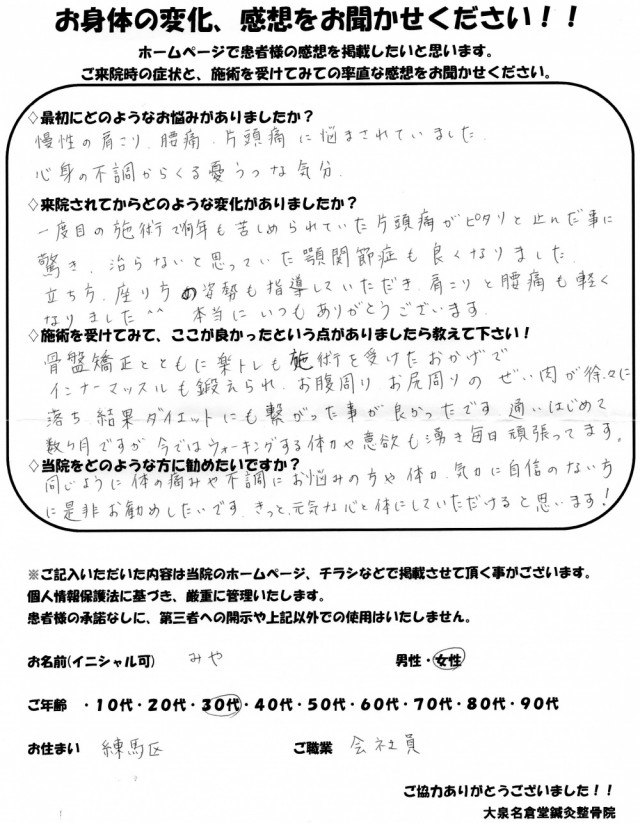 お身体の変化、感想をお聞かせください！！
ホームページで患者様の感想を掲載したいと思います。
ご来院時の症状と、施術を受けてみての率直な感想をお聞かせください。
◇最初にどのようなお悩みがありましたか？
慢性の肩こり、腰痛、片頭痛に悩まされていました。
心身の不調からくる憂うつな気分。
◇来院されてからどのような変化がありましたか？
一度目の施術で何年も苦しめられていた片頭痛がピタリと止んだ事に
驚き、治らないと思っていた顎関節症も良くなりました。
立ち方、座り方の姿勢も指導していただき、肩こりと腰痛も軽く
なりました^^ 本当にいつもありがとうございます。
◇施術を受けてみて、ここが良かったという点がありましたら教えて下さい！
骨盤矯正とともに楽トレも施術を受けたおかげで
インナーマッスルも鍛えられ、お腹周り、お尻周りのぜい肉が徐々に
落ち、結果ダイエットにも繋がった事が良かったです。通いはじめて
数ヶ月ですが今ではウォーキングする体力や意欲も湧き毎日頑張ってます。
◇当院をどのような方に勧めたいですか？
同じように体の痛みや不調にお悩みの方や体力、気力に自信のない方
に是非お勧めしたいです。きっと、元気な心と体にしていただけると思います！
※ご記入いただいた内容は当院のホームページ、チラシなどで掲載させて頂く事がございます。
個人情報保護法に基づき、厳重に管理いたします。
患者様の承諾なしに、第三者への開示や上記以外での使用はいたしません。
お名前(イニシャル可) みや 男性・女性
ご年齢 ・10代・20代・30代・40代・50代・60代・70代・80代・90代
お住まい 練馬区 ご職業 会社員
ご協力ありがとうございました！！
大泉名倉堂鍼灸整骨院